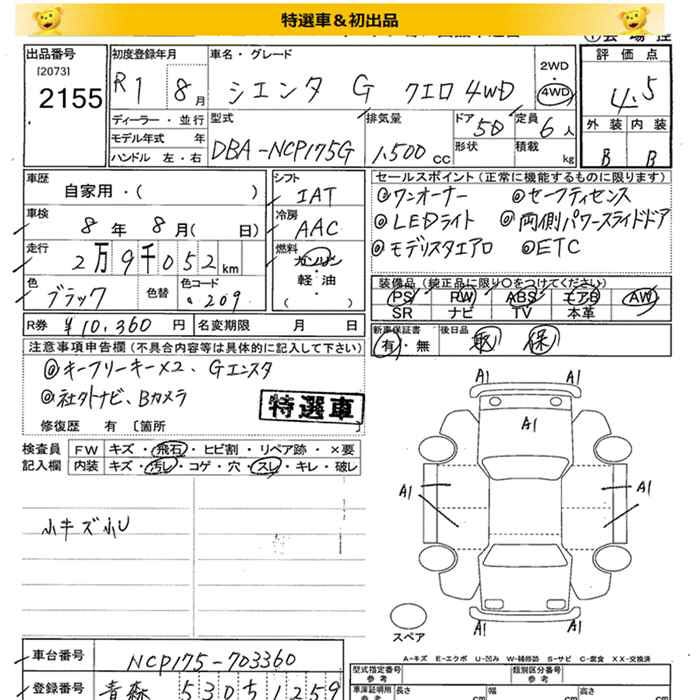 特選車&初出品
出品番号
[2073]
2155
初度登録年月
R1 8月
車名・グレード
シエンタ G クエロ 4WD
2WD
・
4WD
評価点
4.5
外装 内装
B B
ディーラー・並行
モデル年式 年
ハンドル 左・右
型式
DBA-NCP175G
排気量
1,500 CC
ドア 5D
形状
定員 6人
積載 kg
車歴
自家用・( )
車検
8年 8月( 日)
走行
2万9千052km
色
ブラック
色替
色コード
209
シフト
IAT
冷房
AAC
燃料
ガソリン
軽・油
( )
セールスポイント(正常に機能するものに限ります)
◎ワンオーナー ◎セーフティセンス
◎LEDライト ◎両側パワースライドドア
◎モデリスタエアロ ◎ETC
装備品(純正品に限り○をつけてください)
PS PW ABS エアB AW
SR ナビ TV 本革
R券 ¥10,360円
名変期限 月 日
新車保証書
有・無
後日品
取 保
注意事項申告欄(不具合内容等は具体的に記入して下さい)
◎キーフリーキー×2、Gエンスタ
◎社外ナビ、Bカメラ
特選車
修復歴 有 〔箇所 〕
検査員
記入欄
FW キズ・飛石・ヒビ割・リペア跡・×要
内装 キズ・汚レ・コゲ・穴・スレ・キレ・破レ
小キズ小U
A1 A1
A1
A1
A1
A1 A1
スペア
A-キズ E-エクボ U-凹み W-補修跡 S-サビ C-腐食 XX-交換済
車台番号
NCP175-703360
登録番号
青森 530 ち 1259
型式指定番号
参考
類別区分番号
参考
車庫証明用
参考
長さ
cm
幅
cm
高さ
cm